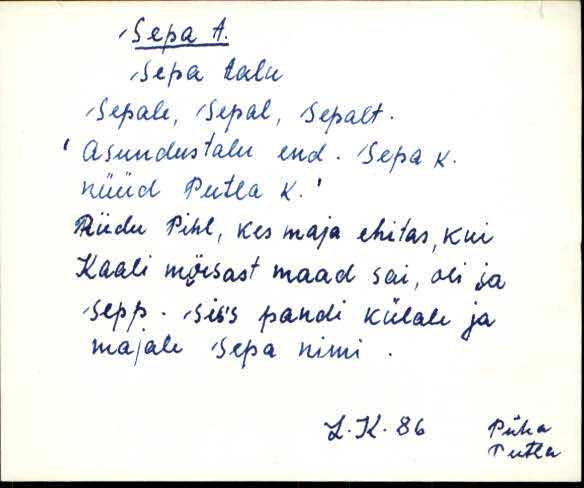 Sepa A.
Sepa talu
Sepale, Sepal, Sepalt.
'Asundustalu end. Sepa k.
nüüd Putla k.'
Riidu Pihl, kes maja ehitas, kui
Kaali mõisast maad sai, oli ja
sepp. Siis pandi külale ja
majale Sepa nimi.
L.K. 86
Püha
Putla